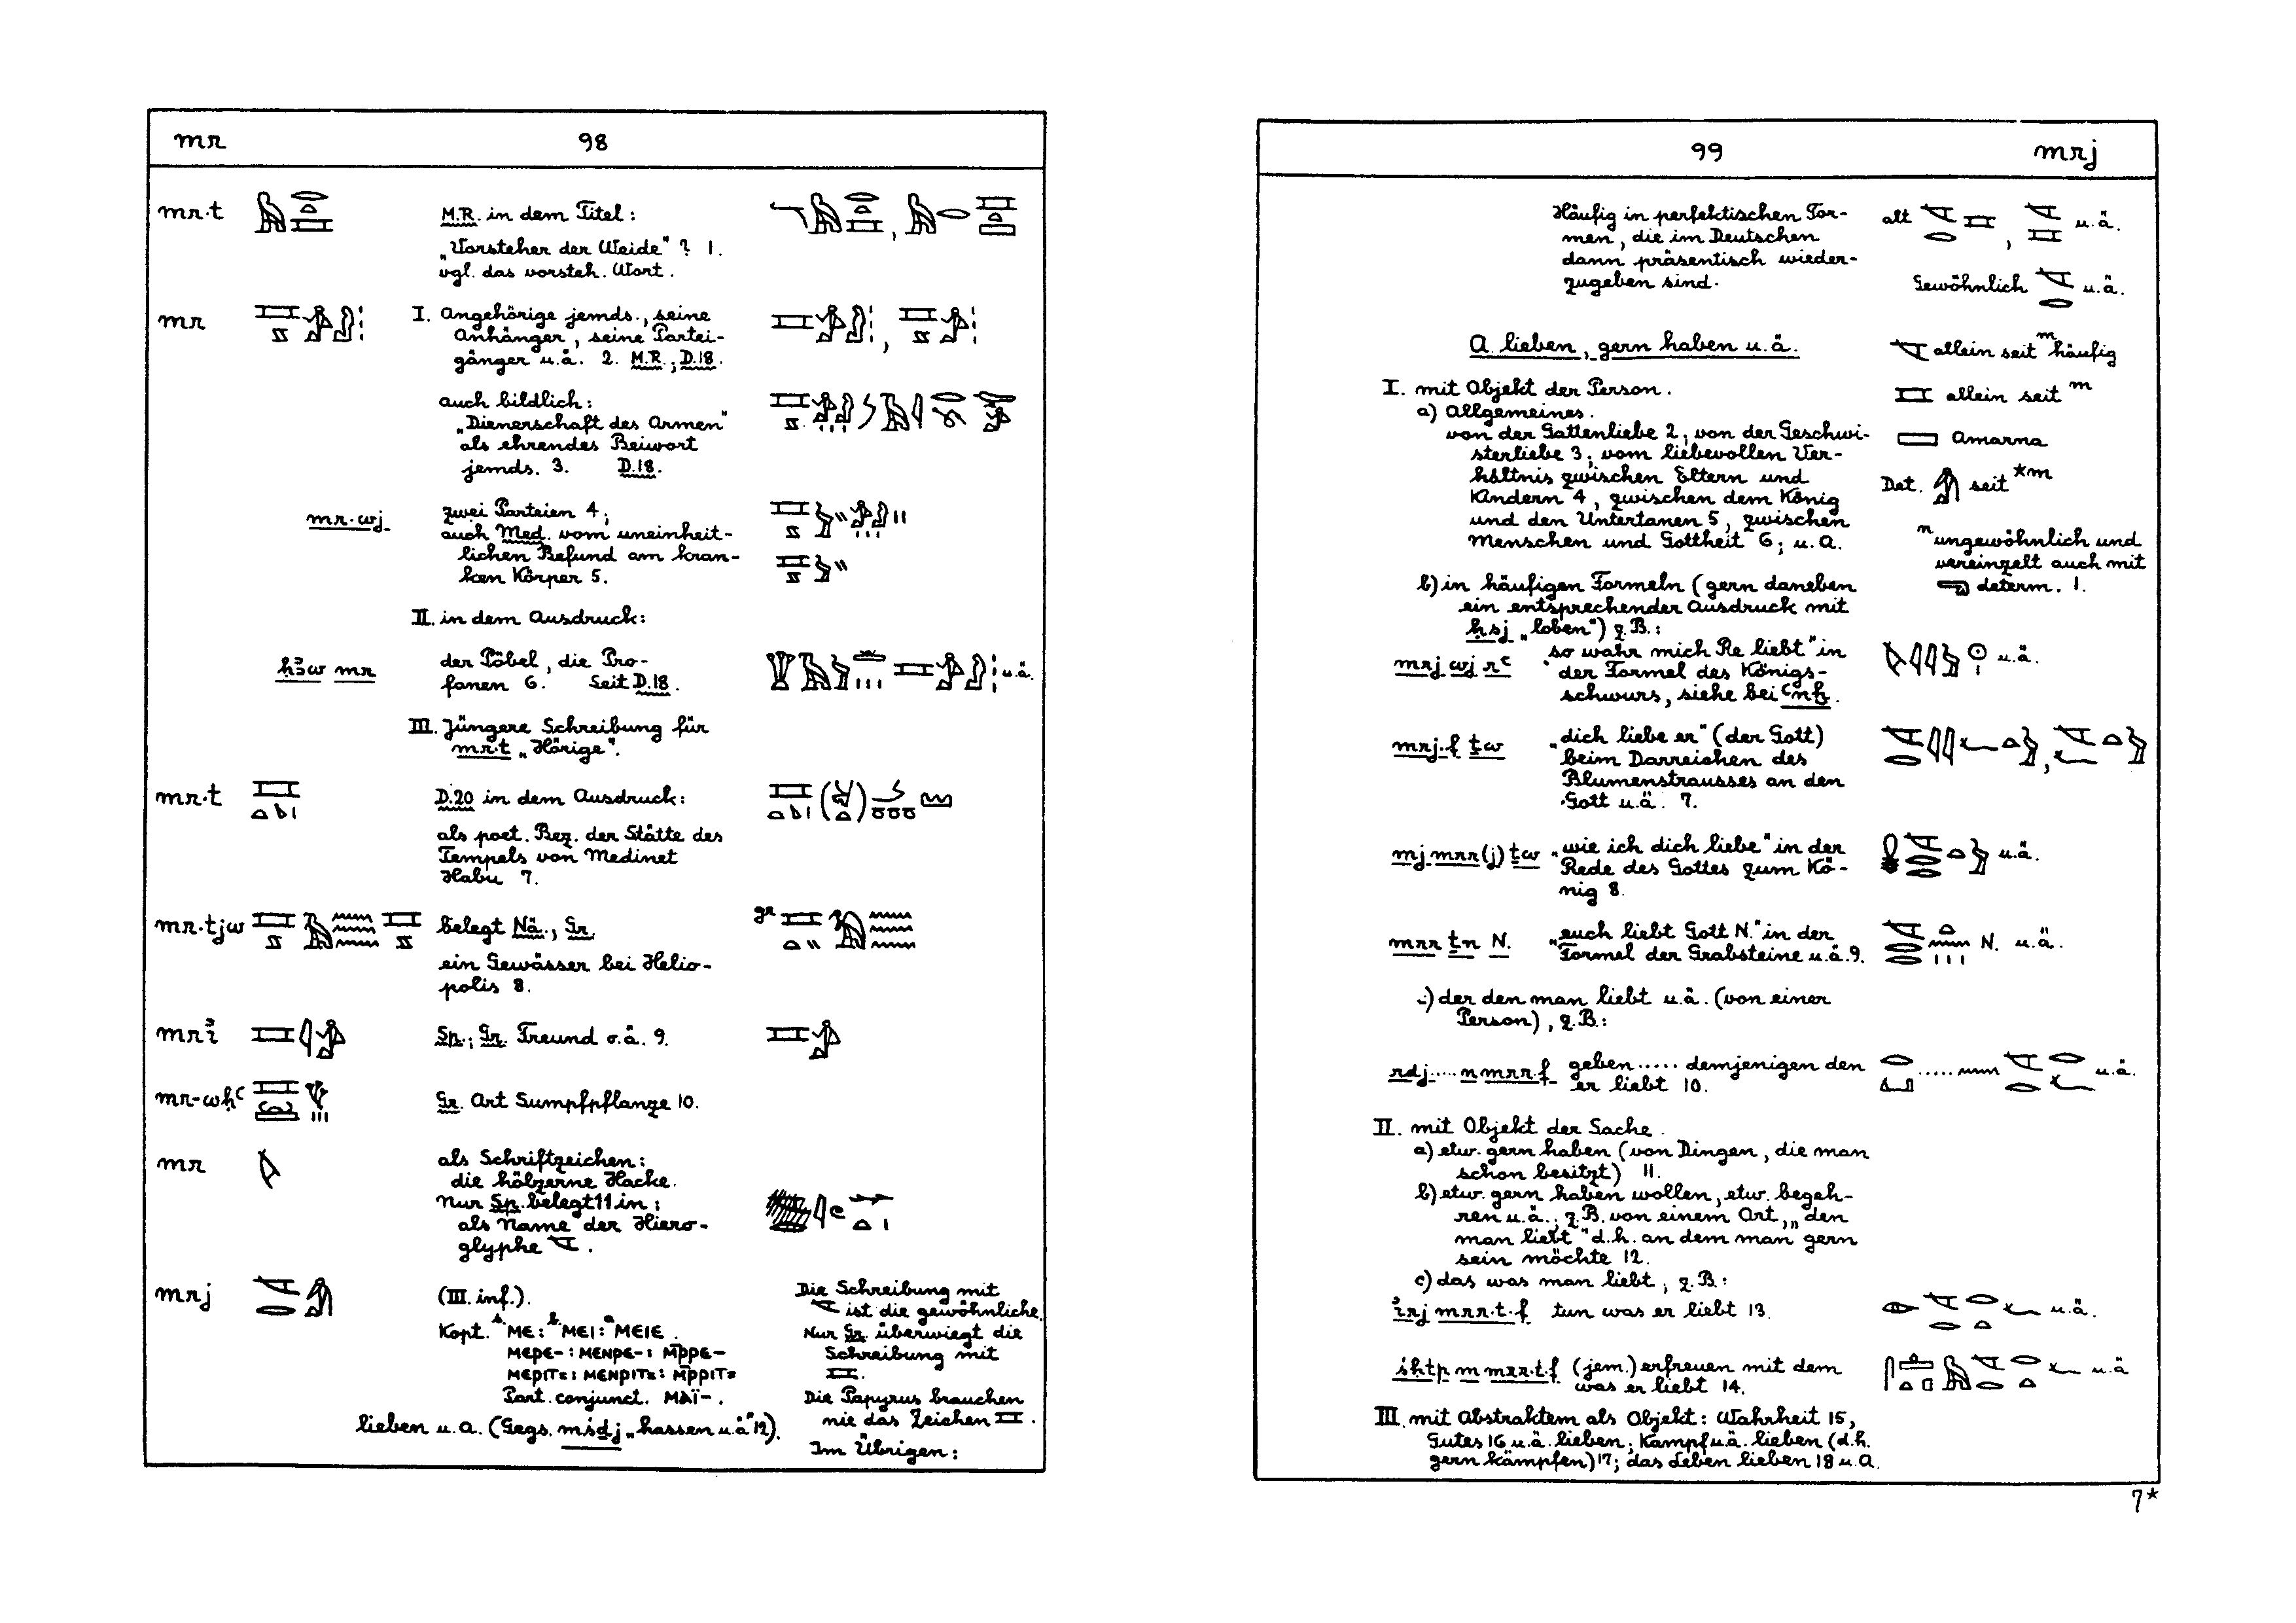 mr 98
mr·t M.R. in dem Titel:
„Vorsteher der Weide“ ? 1.
vgl. das vorsteh. Wort.
mr I. Angehörige jemds., seine
Anhänger, seine Partei-
gänger u.ä. 2. M.R., D.18.
auch bildlich:
„Dienerschaft des Armen“
als ehrendes Beiwort
jemds. 3. D.18.
mr·wj zwei Parteien 4;
auch Med. vom uneinheit-
lichen Befund am kran-
ken Körper 5.
II. in dem Ausdruck:
ḫꜣw mr der Pöbel, die Pro- u.ä.
fanen 6. Seit D.18.
III. Jüngere Schreibung für
mr·t „Hörige“.
mr·t D.20 in dem Ausdruck:
als poet. Bez. der Stätte des
Tempels von Medinet
Habu 7.
mr·tjw belegt Nä., Gr. gr
ein Gewässer bei Helio-
polis 8.
mrꜣi Sp.; Gr. Freund o.ä. 9.
mr-wḥꜥ Gr. Art Sumpfpflanze 10.
mr als Schriftzeichen:
die hölzerne Hacke.
Nur Sp. belegt 11 in:
als Name der Hiero-
glyphe .
mrj (III. inf.). Die Schreibung mit
ist die gewöhnliche.
Kopt. s. ⲘⲈ: b. ⲘⲈⲒ: a ⲘⲈⲒⲈ. Nur Gr. überwiegt die
ⲘⲈⲢⲈ-: ⲘⲈⲚⲢⲈ-: Ⲙ̄ⲢⲢⲈ- Schreibung mit
ⲘⲈⲢⲒⲦ=: ⲘⲈⲚⲢⲒⲦ=: Ⲙ̄ⲢⲢⲒⲦ=
Part. conjunct. ⲘⲀⲒ̈-. Die Papyrus brauchen
nie das Zeichen .
lieben u.A. (Gegs. mśdj „hassen u.ä“ 12).
Im Übrigen:
99 mrj
Häufig in perfektischen For- alt
men, die im Deutschen , u.ä.
dann präsentisch wieder-
zugeben sind. Gewöhnlich u.ä.
A. lieben, gern haben u.ä. allein seit m häufig
I. mit Objekt der Person. allein seit m
a) Allgemeines.
von der Gattenliebe 2, von der Geschwi- Amarna
sterliebe 3; vom liebevollen Ver-
hältnis zwischen Eltern und Det. seit *m
Kindern 4, zwischen dem König
und den Untertanen 5, zwischen
Menschen und Gottheit 6; u.A. n ungewöhnlich und
vereinzelt auch mit
b) in häufigen Formeln (gern daneben determ. 1.
ein entsprechender Ausdruck mit
ḥsj „loben“) z.B.:
mrj wj rꜥ „so wahr mich Re liebt“ in u.ä.
der Formel des Königs-
schwurs, siehe bei ꜥnḫ.
mrj·f ṯw „dich liebe er“ (der Gott)
beim Darreichen des
Blumenstrausses an den
Gott u.ä. 7.
mj mrr(j) ṯw „wie ich dich liebe“ in der u.ä.
Rede des Gottes zum Kö-
nig 8.
mrr ṯn N. „euch liebt Gott N.“ in der N. u.ä.
Formel der Grabsteine u.ä. 9.
c) der den man liebt u.ä. (von einer
Person), z.B.:
rdj .... n mrr·f geben ..... demjenigen den ..... u.ä.
er liebt 10.
II. mit Objekt der Sache.
a) etw. gern haben (von Dingen, die man
schon besitzt) 11.
b) etw. gern haben wollen, etw. begeh-
ren u.ä.; z.B. von einem Ort, „den
man liebt“ d.h. an dem man gern
sein möchte 12.
c) das was man liebt, z.B.:
irj mrr·t·f tun was er liebt 13. u.ä.
śḥtp m mrr·t·f (jem.) erfreuen mit dem u.ä
was er liebt 14.
III. mit Abstraktem als Objekt: Wahrheit 15,
Gutes 16 u.ä. lieben; Kampf u.ä. lieben (d.h.
gern kämpfen) 17; das Leben lieben 18 u.A.
7*